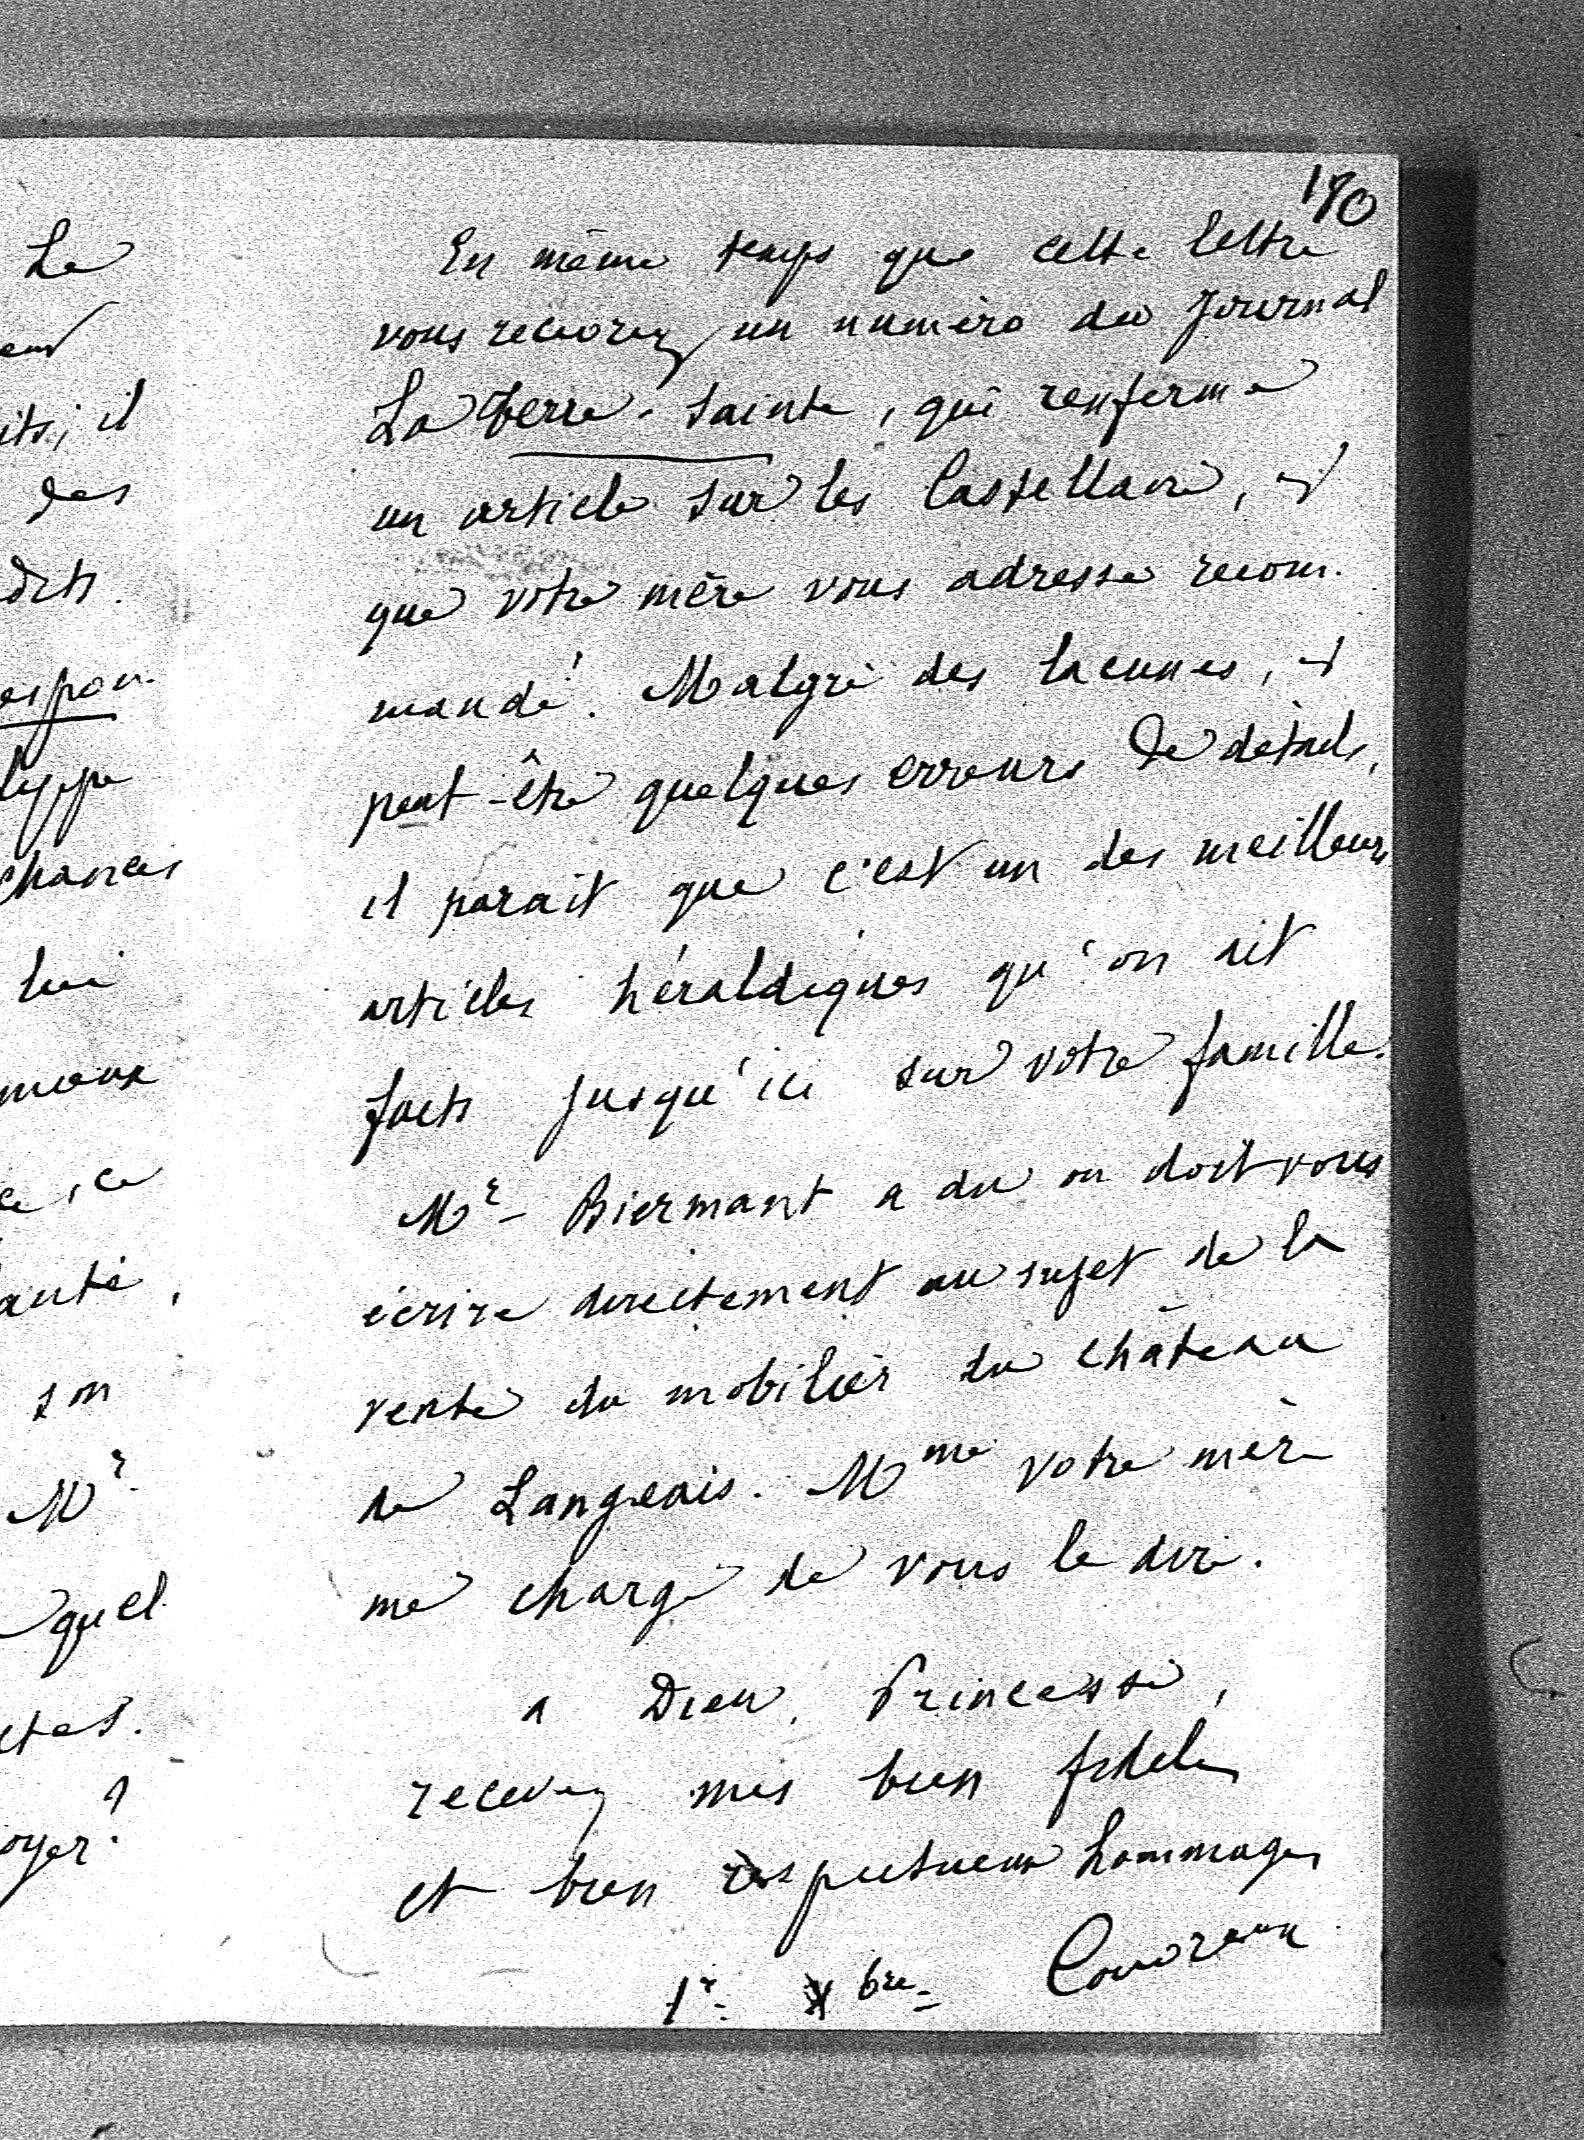 Le
its, il
des
dits.
espon-
lippe
chances
lui
ce, ce
anté,
son
Mr.
quel
oyer?
170
En même temps que cette lettre
vous recevrez un numéro du Journal
La Terre-Sainte, qui renferme
un article sur les Castellane, et
que votre mère vous adresse recom-
mandé. Malgré des lacunes, et
peut-être quelques erreurs de détails,
il parait que c'est un des meilleurs
articles héraldiques qu'on ait
faits jusqu'ici sur votre famille.
Mr- Biermant a du ou doit vous
écrire directement au sujet de la
vente du mobilier du château
de Langeais. Mme votre mère
me charge de vous le dire.
a Dieu, Princesse,
recevez mes bien fidèles
et bien respectueux hommages
Couvreux
1r- Xbre-